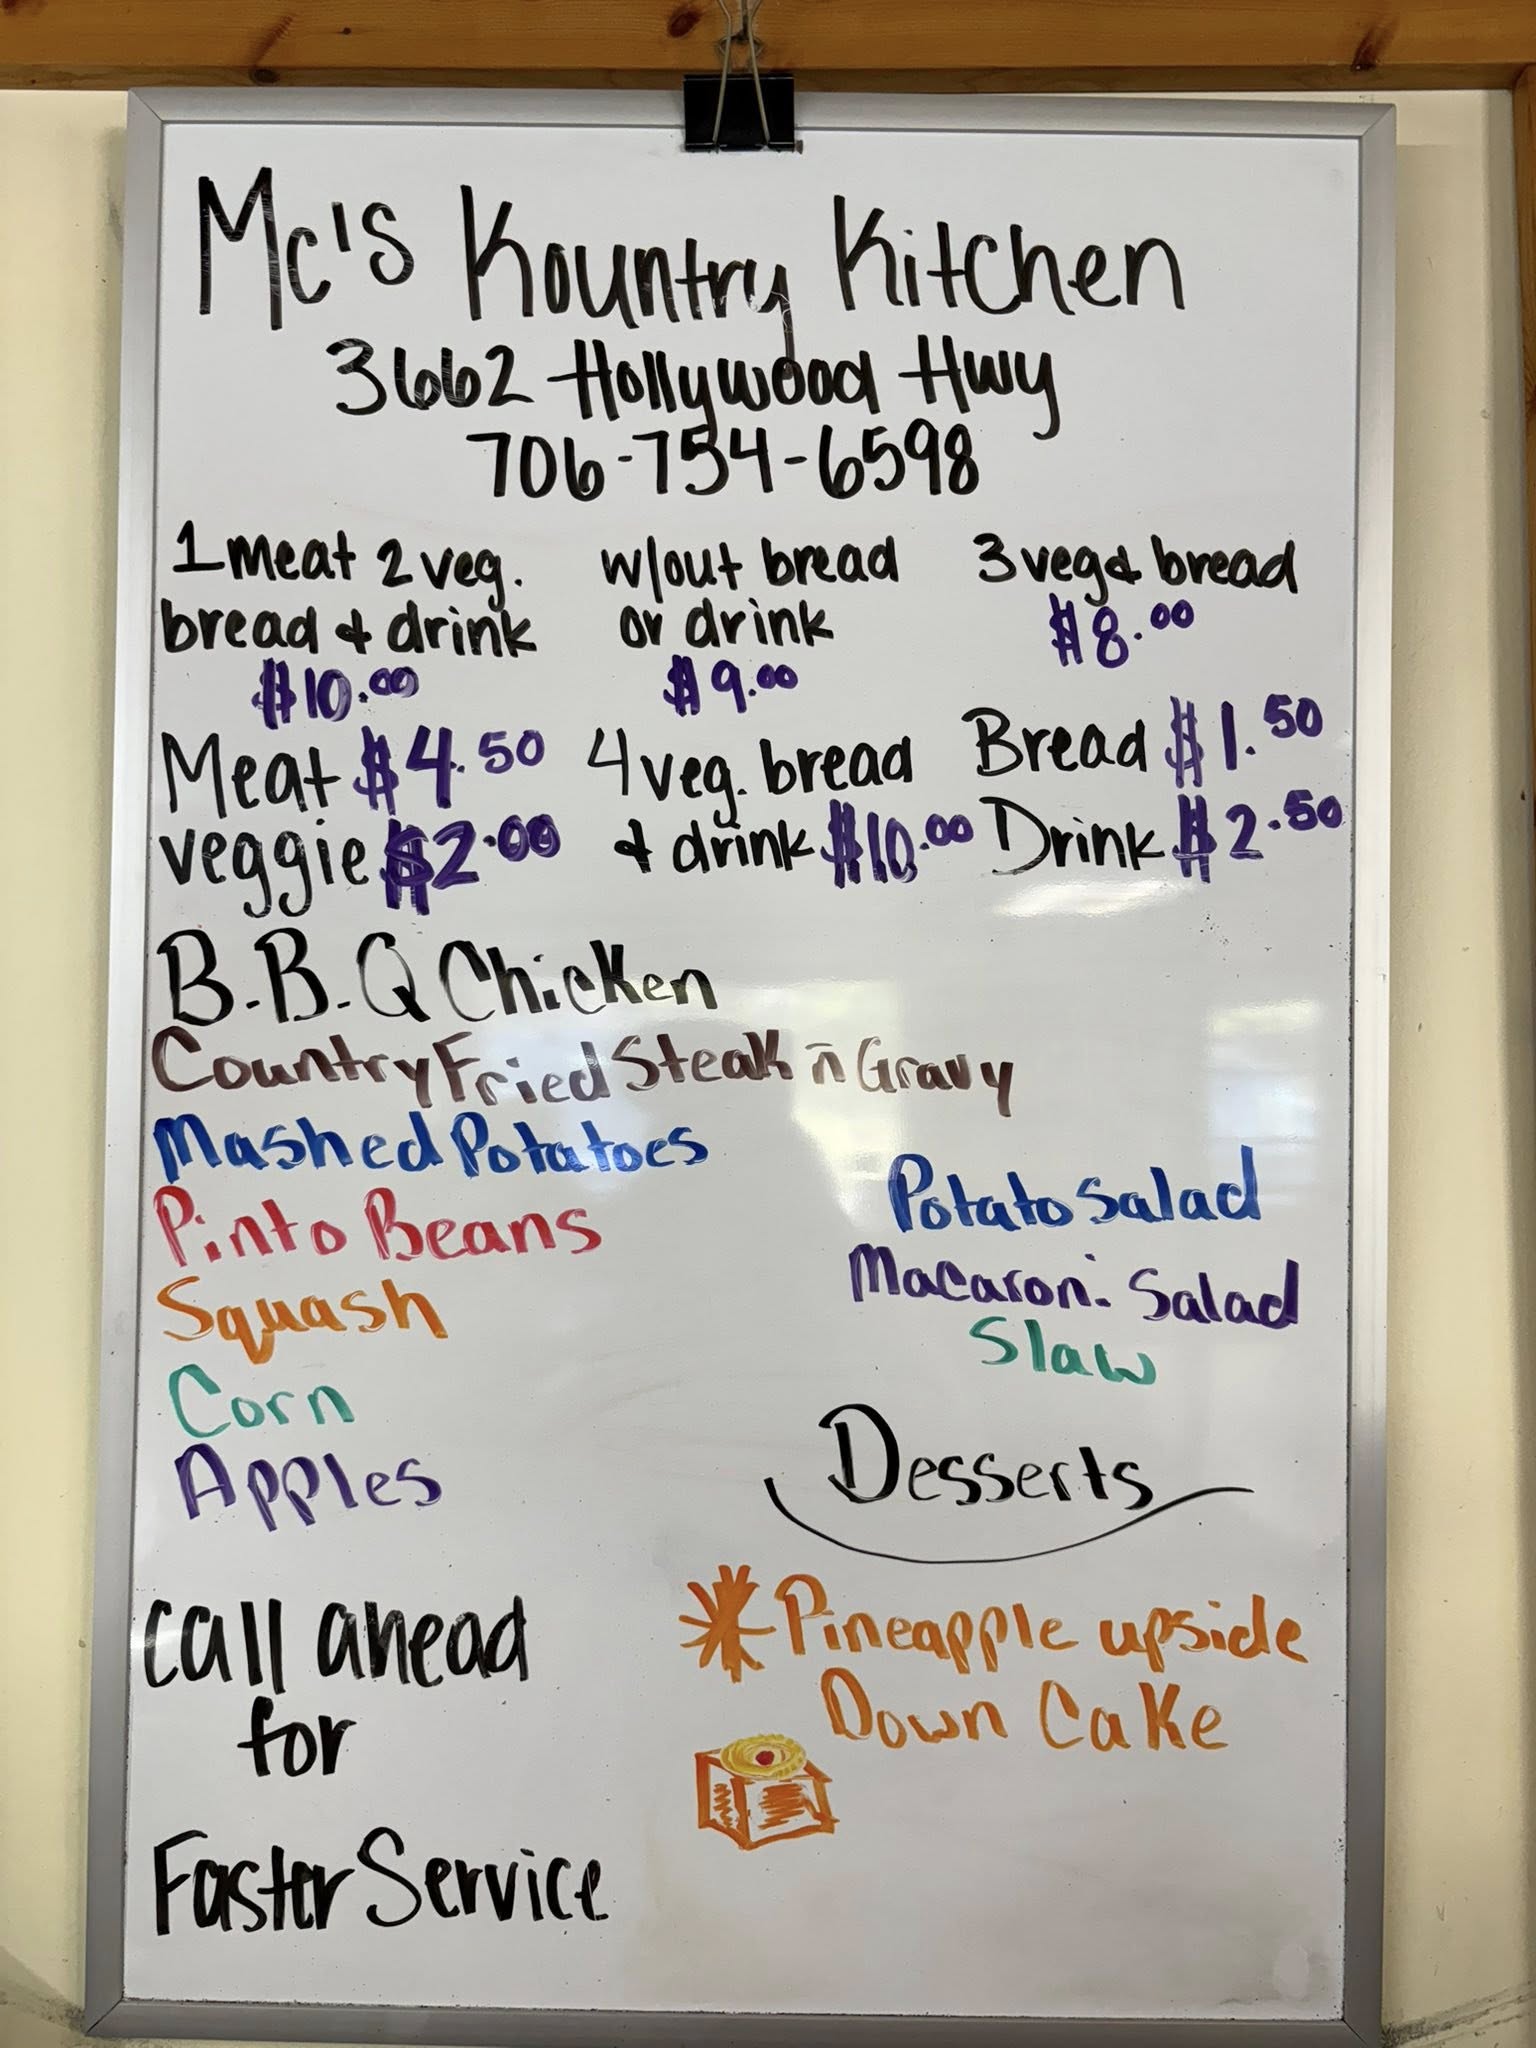 Mc's Kountry Kitchen
3662 Hollywood Hwy
706-754-6598
1 meat 2 veg.
bread & drink
$10.00
w/out bread
or drink
$9.00
3 veg & bread
$8.00
Meat $4.50
veggie $2.00
4 veg. bread
& drink $10.00
Bread $1.50
Drink $2.50
B.B.Q Chicken
Country Fried Steak n Gravy
Mashed Potatoes
Pinto Beans
Squash
Corn
Apples
Potato Salad
Macaroni Salad
Slaw
Desserts
Pineapple upside
Down Cake
Call ahead
for
Faster Service